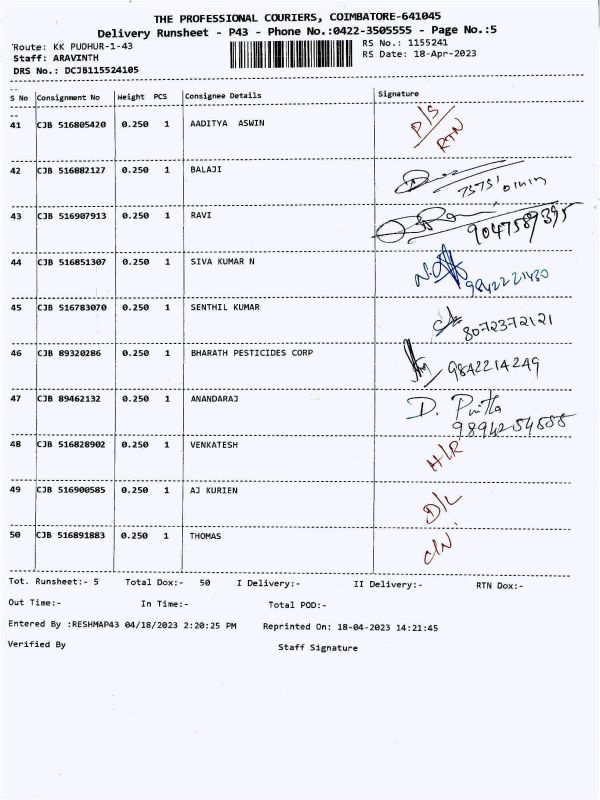 THE PROFESSIONAL COURIERS, COIMBATORE-641045
Delivery Runsheet - P43 - Phone No.:0422-3505555 - Page No.:5
Route: KK PUDHUR-1-43 RS No.: 1155241
Staff: ARAVINTH RS Date: 18-Apr-2023
DRS No.: DCJB115524105
S No Consignment No Weight PCS Consignee Details Signature
41 CJB 516805420 0.250 1 AADITYA ASWIN P/S RTN
42 CJB 516882127 0.250 1 BALAJI
43 CJB 516907913 0.250 1 RAVI 9047589395
44 CJB 516851307 0.250 1 SIVA KUMAR N
45 CJB 516783070 0.250 1 SENTHIL KUMAR 8072372121
46 CJB 89320286 0.250 1 BHARATH PESTICIDES CORP 9842214249
47 CJB 89462132 0.250 1 ANANDARAJ D.
48 CJB 516828902 0.250 1 VENKATESH H/R
49 CJB 516900585 0.250 1 AJ KURIEN D/L
50 CJB 516891883 0.250 1 THOMAS C/N.
Tot. Runsheet:- 5 Total Dox:- 50 I Delivery:- II Delivery:- RTN Dox:-
Out Time:- In Time:- Total POD:-
Entered By :RESHMAP43 04/18/2023 2:20:25 PM Reprinted On: 18-04-2023 14:21:45
Verified By Staff Signature